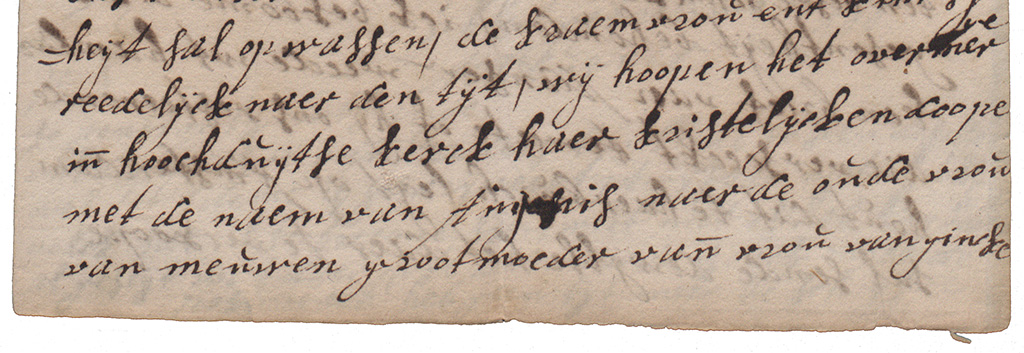 heyt sal opwassen, de kraemvrou ent
reedelijck naer den tijt, wij hoopen het
in hoochduijtse kerck haer kristelijcken doope
met de naem van naer de oude vrou
van meuwen grootmoeder van vrou van ginske